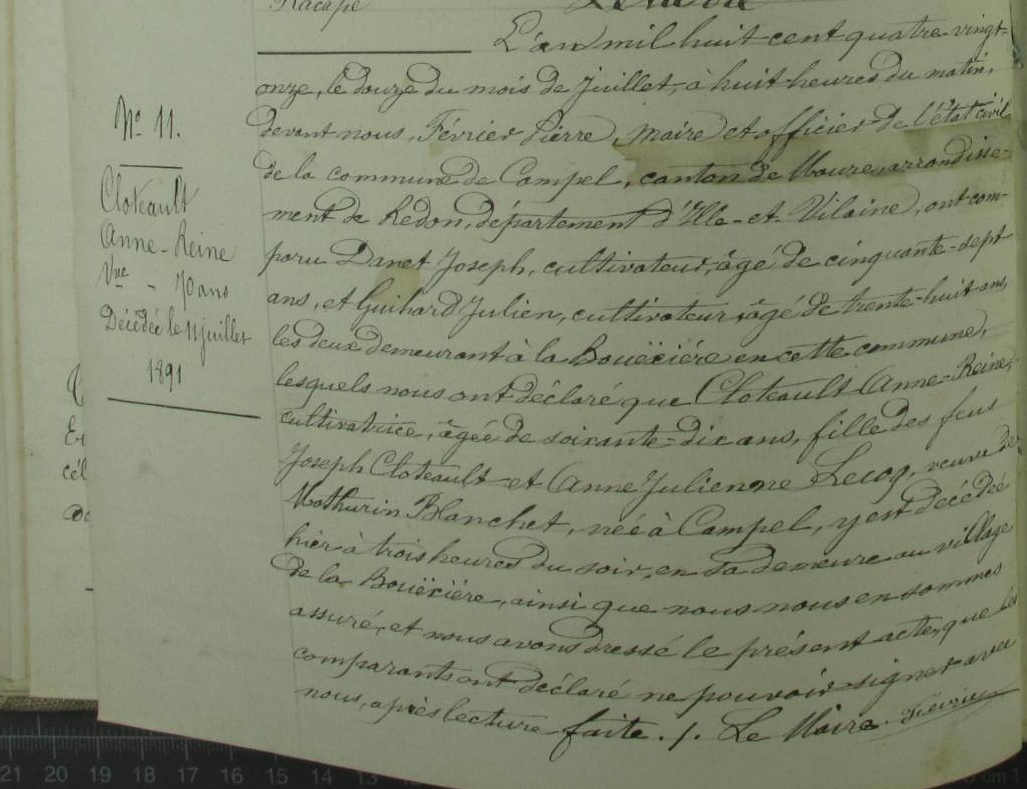 Racapé
Nº 11.
Cloteault
Anne-Reine
Vve - 70 ans
Décédée le 11 juillet
1891
L'an mil huit cent quatre-vingt-
onze, le douze du mois de Juillet, à huit heures du matin,
devant nous, Février Pierre, maire et officier de l'état civil
de la commune de Campel, canton de Maure, arrondisse-
ment de Redon, département d'Ille-et-Vilaine, ont com-
paru Danet Joseph, cultivateur, âgé de cinquante-sept
ans, et Guihard Julien, cultivateur, âgé de trente-huit ans,
les deux demeurant à la Bouëxière en cette commune,
lesquels nous ont déclaré que Cloteault Anne-Reine,
cultivatrice, âgée de soixante-dix ans, fille des feus
Joseph Cloteault et Anne Julienne Lecoq, veuve de
Mathurin Blanchet, née à Campel, y est décédée
hier à trois heures du soir, en sa demeure au village
de la Bouëxière, ainsi que nous nous en sommes
assuré, et nous avons dressé le présent acte, que les
comparants ont déclaré ne pouvoir signer avec
nous, après lecture faite. /. Le Maire Février
21 20 19 18 17 16 15 14 13